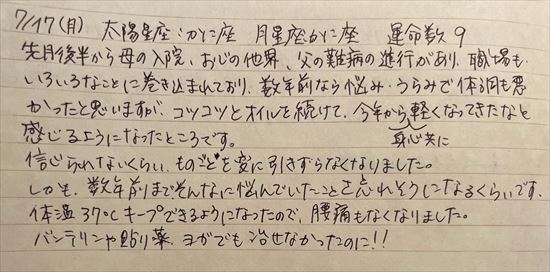 7/17(月) 太陽星座:かに座 月星座かに座 運命数9
先月後半から母の入院、おじの他界、父の難病の進行があり、職場も
いろいろなことに巻き込まれており、数年前なら悩み・うらみで体調も悪
かったと思いますが、コツコツとオイルを続けて、今年から軽くなってきたなと
身心共に
感じるようになったところです。
信じられないくらい、ものごとを変に引きずらなくなりました。
しかも、数年前まであんなに悩んでいたことを忘れそうになるくらいです。
体温37℃キープできるようになったので、腰痛もなくなりました。
バンテリンや貼り薬、ヨガでも治せなかったのに!!